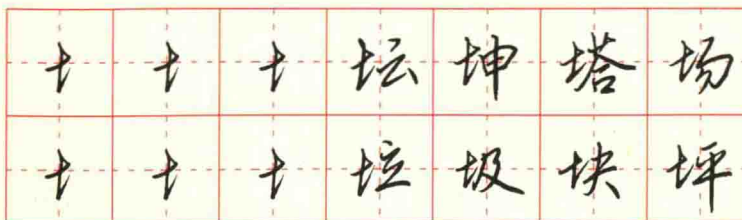 土土土坛坤塔场
土土土垃圾块坪